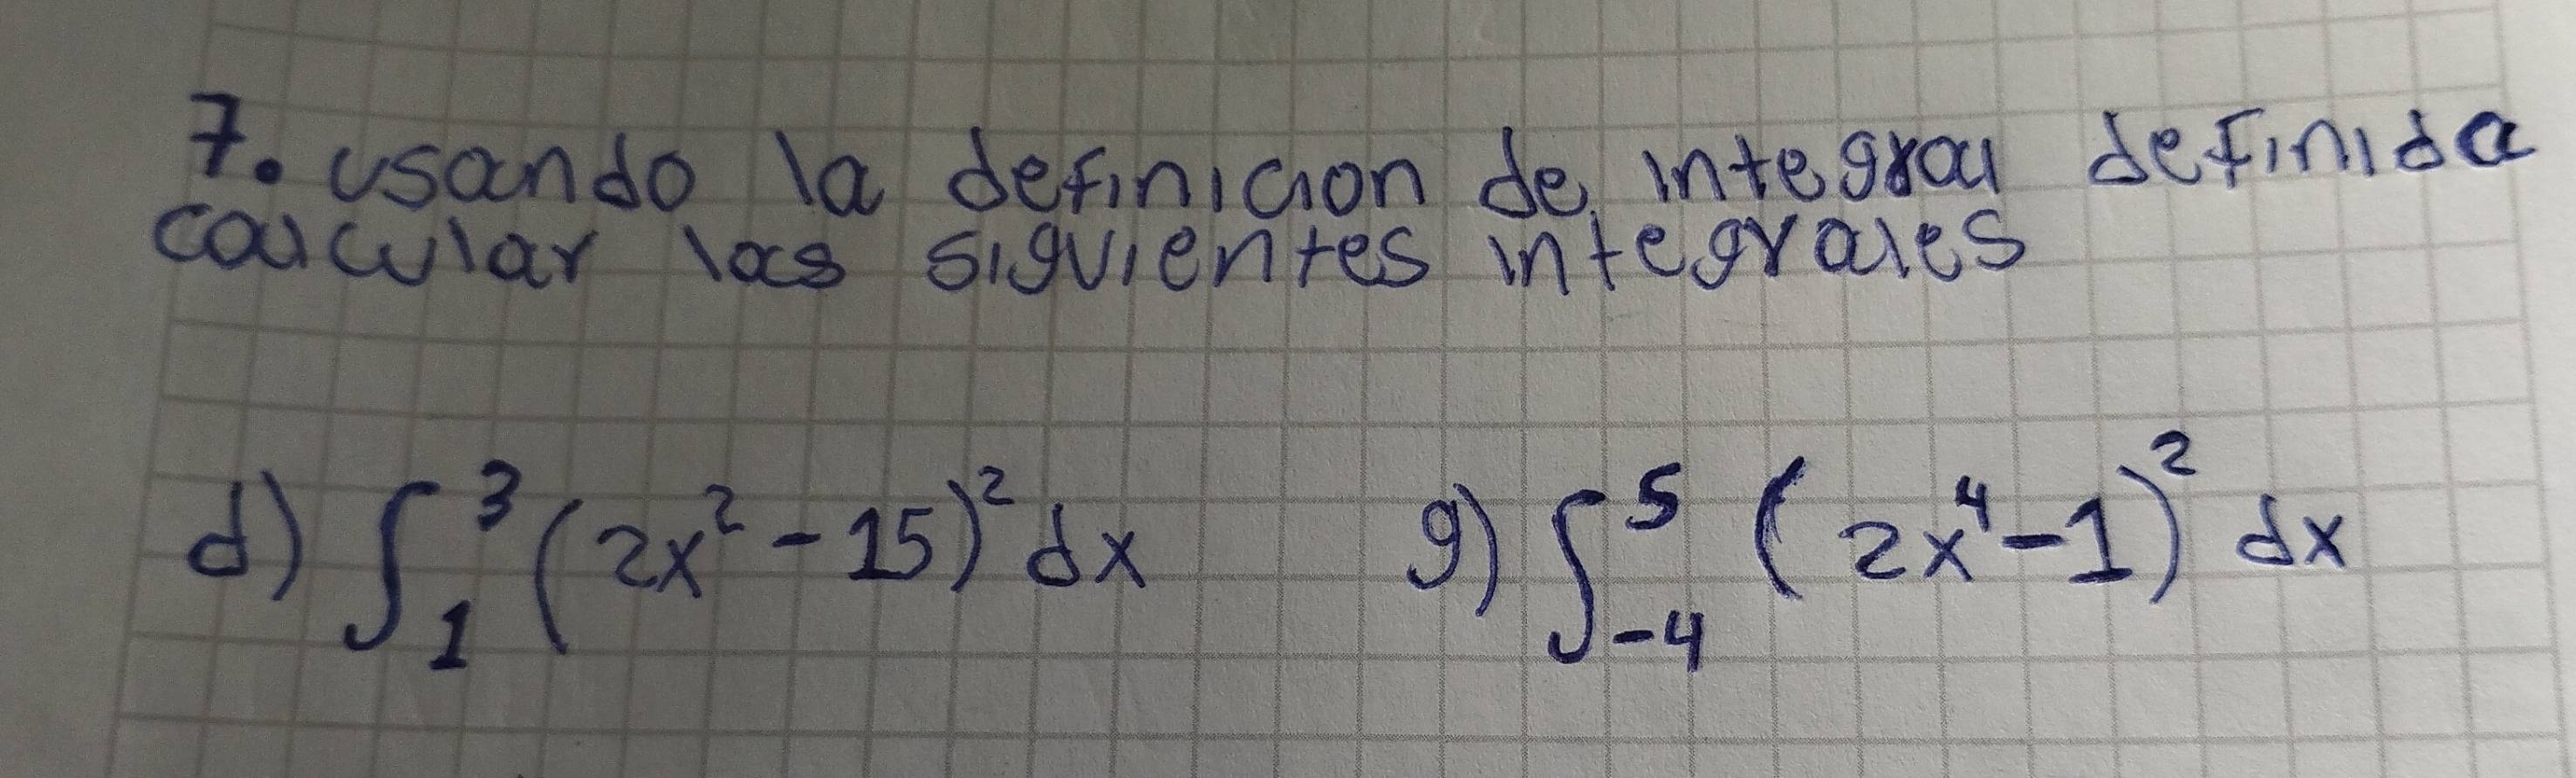 7. usando la definicion de integral definida
calcular las siguientes integrales
d) ∫₁³ (2x² - 15)² dx g) ∫₋₄⁵ (2x⁴ - 1)² dx